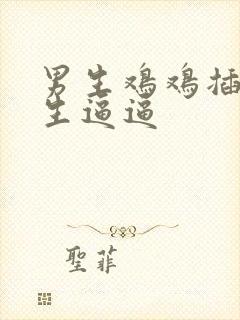 男生鸡鸡插
生逼逼
聖菲